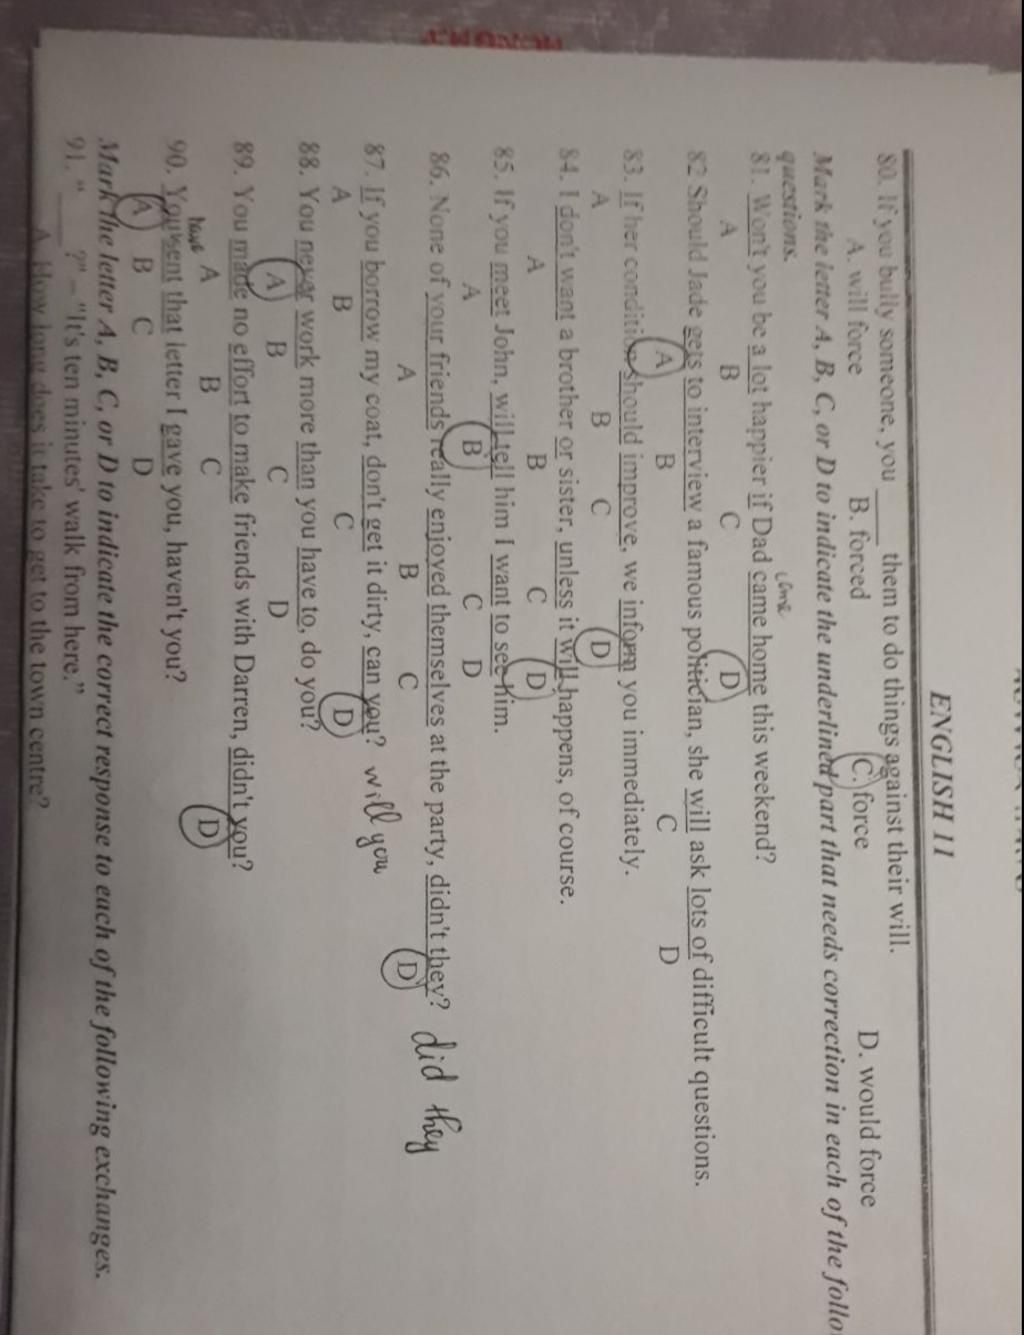 ENGLISH 11
80. If you bully someone, you ____ them to do things against their will.
A. will force B. forced C. force D. would force
Mark the letter A, B, C, or D to indicate the underlined part that needs correction in each of the follo
questions.
come
81. Won't you be a lot happier if Dad came home this weekend?
A B C D
82 Should Jade gets to interview a famous politician, she will ask lots of difficult questions.
A B C D
83. If her condition should improve, we inform you immediately.
A B C D
84. I don't want a brother or sister, unless it will happens, of course.
A B C D
85. If you meet John, will tell him I want to see him.
A B C D
86. None of your friends really enjoyed themselves at the party, didn't they? did they
A B C D
87. If you borrow my coat, don't get it dirty, can you? will you
A B C D
88. You never work more than you have to, do you?
A B C D
89. You made no effort to make friends with Darren, didn't you?
A B C D
have
90. You sent that letter I gave you, haven't you?
A B C D
Mark the letter A, B, C, or D to indicate the correct response to each of the following exchanges.
91. "____?" – "It's ten minutes' walk from here."
A. How long does it take to get to the town centre?